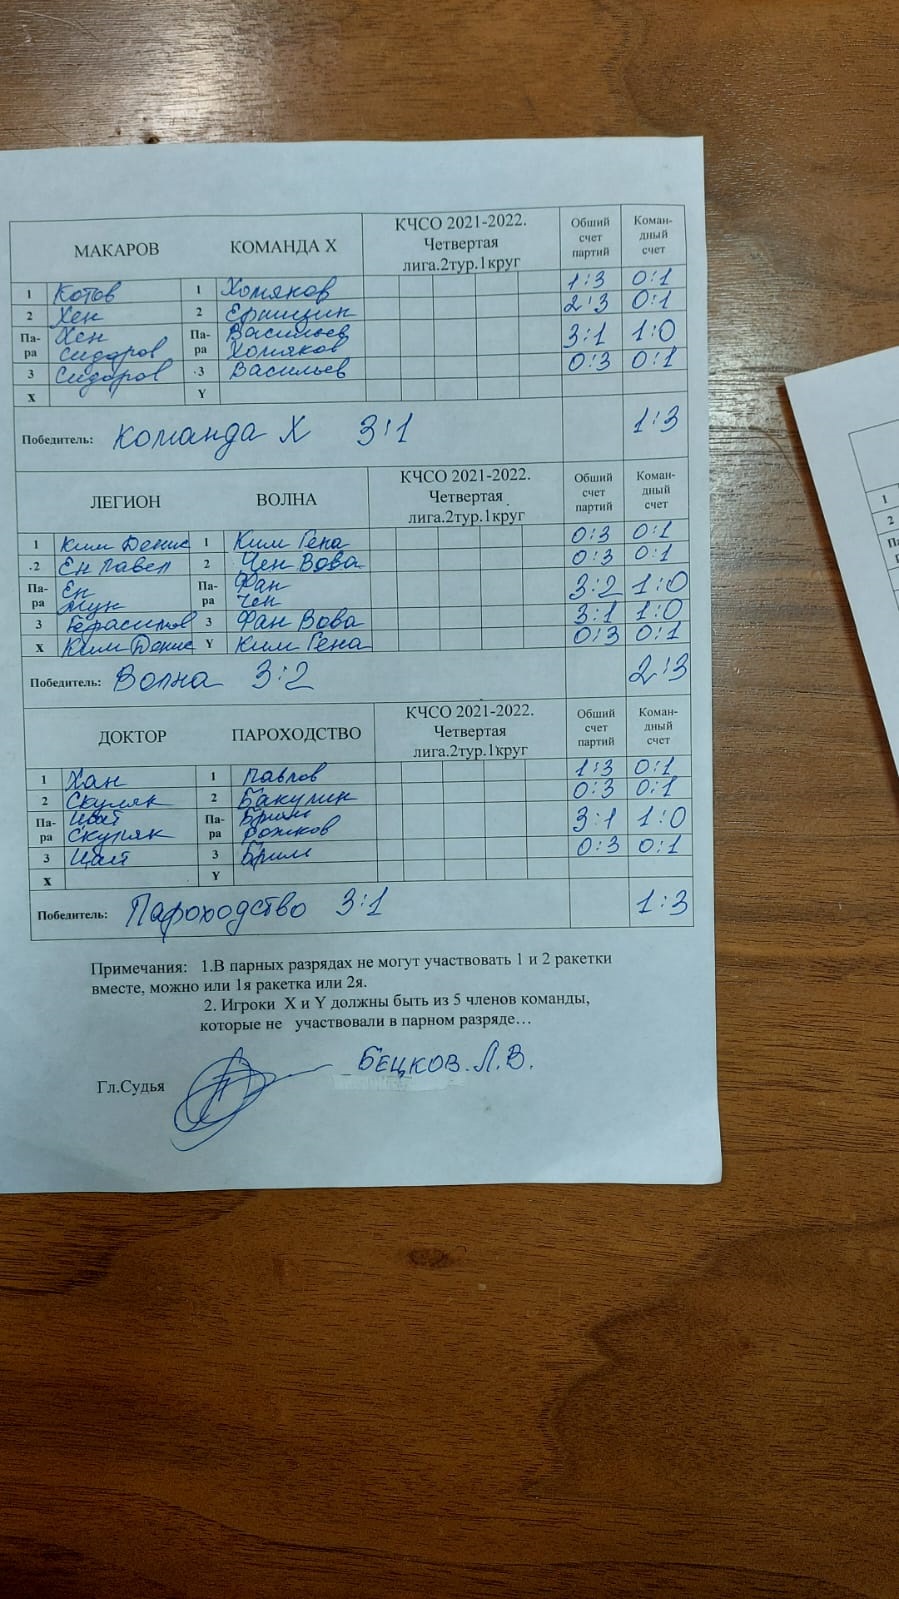 МАКАРОВ КОМАНДА Х КЧСО 2021-2022. Четвертая лига.2тур.1круг Обший счет партий Коман-дный счет
1 Котов 1 Хомяков 1:3 0:1
2 Хен 2 Ершищин 2:3 0:1
Па-ра Хен Сидоров Па-ра Васильев Хомяков 3:1 1:0
3 Сидоров 3 Васильев 0:3 0:1
X Y
Победитель: Команда Х 3:1 1:3
ЛЕГИОН ВОЛНА КЧСО 2021-2022. Четвертая лига.2тур.1круг Обший счет партий Коман-дный счет
1 Ким Денис 1 Ким Гена 0:3 0:1
2 Ен Павел 2 Чен Вова 0:3 0:1
Па-ра Ен Мун Па-ра Фан Чен 3:2 1:0
3 Герасимов 3 Фан Вова 3:1 1:0
X Ким Денис Y Ким Гена 0:3 0:1
Победитель: Волна 3:2 2:3
ДОКТОР ПАРОХОДСТВО КЧСО 2021-2022. Четвертая лига.2тур.1круг Обший счет партий Коман-дный счет
1 Хан 1 Павлов 1:3 0:1
2 Скуляк 2 Бакулин 0:3 0:1
Па-ра Цай Скуляк Па-ра Брим Рожков 3:1 1:0
3 Цай 3 Брим 0:3 0:1
X Y
Победитель: Пароходство 3:1 1:3
Примечания: 1.В парных разрядах не могут участвовать 1 и 2 ракетки
вместе, можно или 1я ракетка или 2я.
2. Игроки X и Y должны быть из 5 членов команды,
которые не участвовали в парном разряде…
Гл.Судья Бецков.Л.В.
1
2